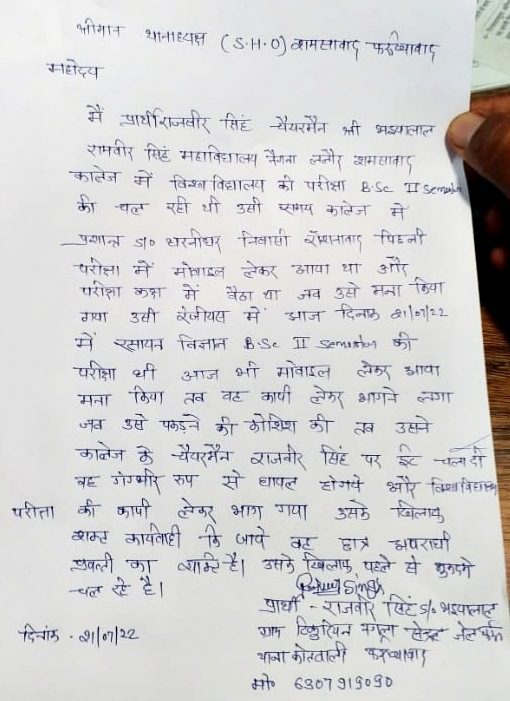 श्रीमान थानाध्यक्ष (S.H.O) शमसाबाद फर्रुखाबाद
महोदय
मैं प्रार्थी राजवीर सिंह चैयरमैन श्री भइयालाल
रामवीर सिंह महाविद्यालय शमसाबाद
कालेज में विश्वविद्यालय की परीक्षा B.Sc II Semester
की चल रही थी उसी समय कालेज में
प्रशान्त S/o धरनीधर निवासी पिछली
परीक्षा में मोबाइल लेकर आया था और
परीक्षा कक्ष में बैठा था जब उसे मना किया
गया उसी रंजीयस में आज दिनांक 21/07/22
में रसायन विज्ञान B.Sc II Semester की
परीक्षा थी आज भी मोबाइल लेकर आया
मना किया तब वह कापी लेकर भागने लगा
जब उसे पकड़ने की कोशिश की तब उसने
कालेज के चैयरमैन राजवीर सिंह पर ईट चला दी
वह गंम्भीर रुप से घायल होगये और विश्वविद्यालय
परीक्षा की कापी लेकर भाग गया उसके खिलाफ
शक्त कार्यवाही कि जाये वह छात्र अपराधी
प्रवती का व्यक्ति है। उसके खिलाफ पहले से मुकदमे
चल रहे है।
Singh
प्रार्थी - राजवीर सिंह S/o भइयालाल
दिनांक - 21/07/22
ग्राम नगला सेन्ट्रल जेल
थाना कोतवाली फरुखाबाद
मो० 6307919090